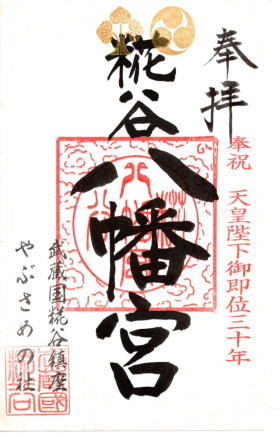 奉拝
奉祝 天皇陛下御即位三十年
糀谷八幡宮
武蔵国糀谷鎮座
やぶさめの社